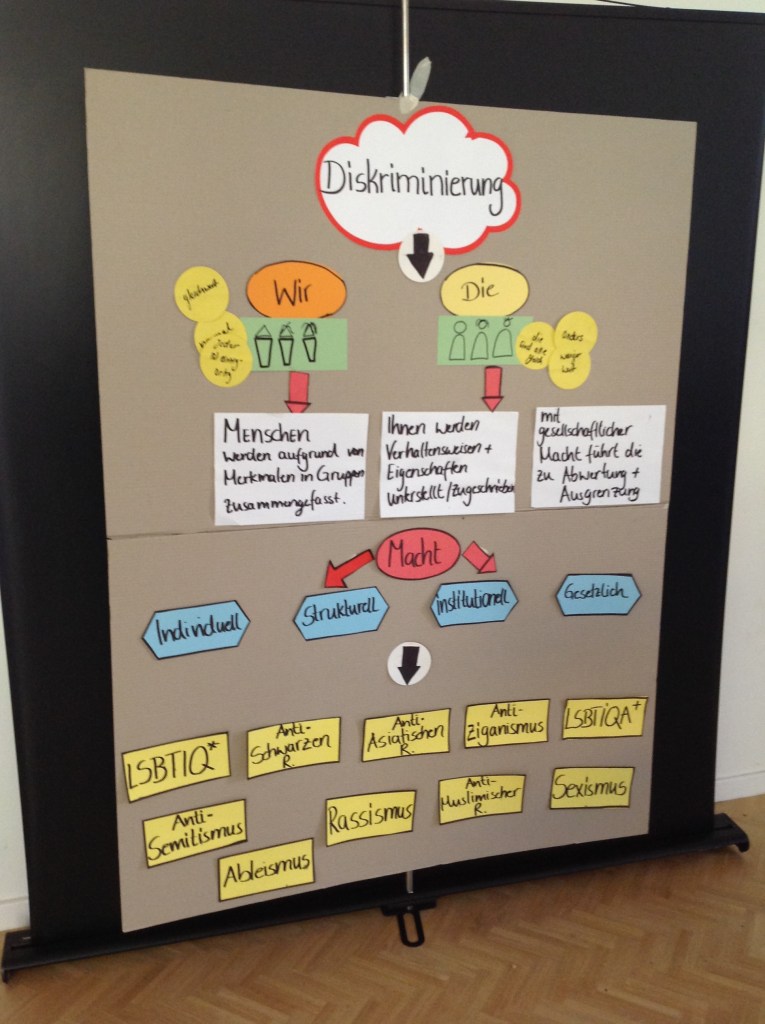 Diskriminierung
Wir
Die
normal
die
sind alle
gleich
anders
weniger
wert
MENSCHEN
werden aufgrund von
Merkmalen in Gruppen
zusammengefasst.
Ihnen werden
Verhaltensweisen +
Eigenschaften
unterstellt/zugeschrieben
mit
gesellschaftlicher
Macht führt die
zu Abwertung +
Ausgrenzung
Macht
Individuell
Strukturell
institutionell
Gesetzlich
LSBTIQ*
Anti-
Schwarzen
R.
Anti-
Asiatischen
R.
Anti-
Ziganismus
LSBTIQA+
Anti-
Semitismus
Ableismus
Rassismus
Anti-
Muslimischer
R.
Sexismus